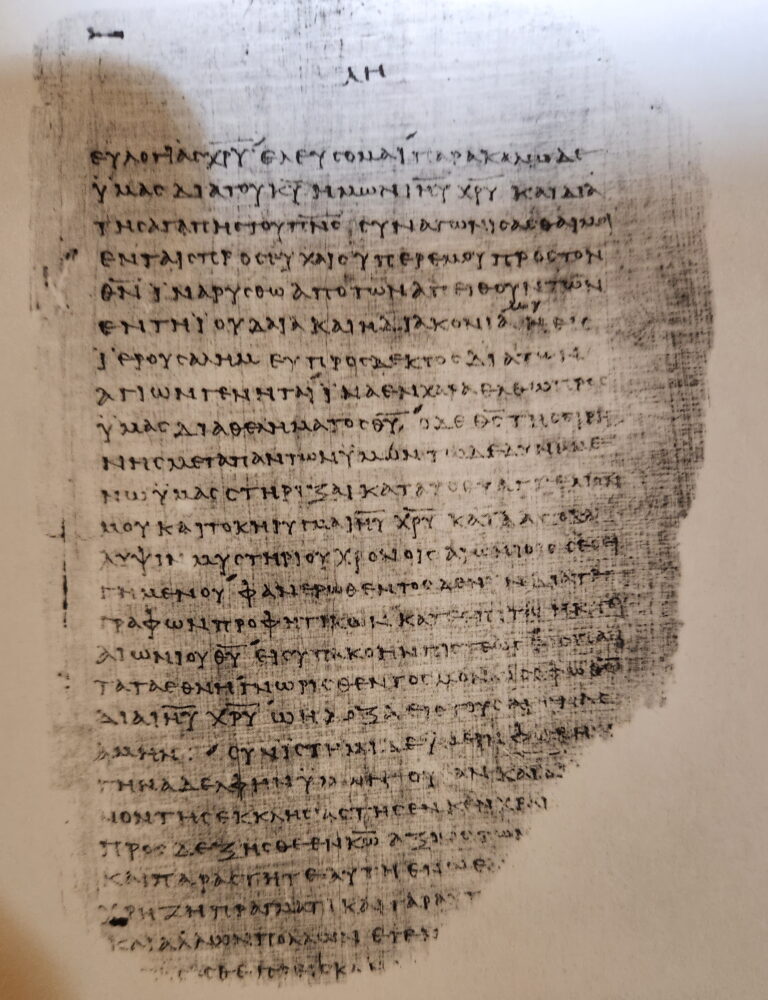 ΛΗ
ΕΥΛΟΓΙΑϹ Χ̅Ρ̅Υ̅ ΕΛΕΥϹΟΜΑΙ ΠΑΡΑΚΑΛΩ ΔΕ
ΫΜΑϹ ΔΙΑ ΤΟΥ Κ̅Υ̅ ΗΜΩΝ Ι̅Η̅Υ̅ Χ̅Ρ̅Υ̅ ΚΑΙ ΔΙΑ
ΤΗϹ ΑΓΑΠΗϹ ΤΟΥ Π̅Ν̅Ϲ̅ ϹΥΝΑΓΩΝΙϹΑϹΘΑΙ ΜΟΙ
ΕΝ ΤΑΙϹ ΠΡΟϹΕΥΧΑΙϹ ΥΠΕΡ ΕΜΟΥ ΠΡΟϹ ΤΟΝ
Θ̅Ν̅ ΪΝΑ ΡΥϹΘΩ ΑΠΟ ΤΩΝ ΑΠΕΙΘΟΥΝΤΩΝ
ΕΝ ΤΗ ΪΟΥΔΑΙΑ ΚΑΙ Η ΔΙΑΚΟΝΙΑ ΜΟΥ Η ΕΙϹ
ΪΕΡΟΥϹΑΛΗΜ ΕΥΠΡΟϹΔΕΚΤΟϹ ΔΙΑ ΤΩΝ
ΑΓΙΩΝ ΓΕΝΗΤΑΙ ΪΝΑ ΕΝ ΧΑΡΑ ΕΛΘΩ ΠΡΟϹ
ΫΜΑϹ ΔΙΑ ΘΕΛΗΜΑΤΟϹ Θ̅Υ̅ Ο ΔΕ Θ̅Ϲ̅ ΤΗϹ ΙΡΗ
ΝΗϹ ΜΕΤΑ ΠΑΝΤΩΝ ΫΜΩΝ ΤΩ ΔΕ ΔΥΝΑΜΕ
ΝΩ ΫΜΑϹ ϹΤΗΡΙΞΑΙ ΚΑΤΑ ΤΟ ΕΥΑΓΓΕΛΙΟΝ
ΜΟΥ ΚΑΙ ΤΟ ΚΗΡΥΓΜΑ Ι̅Η̅Υ̅ Χ̅Ρ̅Υ̅ ΚΑΤΑ ΑΠΟΚΑ
ΛΥΨΙΝ ΜΥϹΤΗΡΙΟΥ ΧΡΟΝΟΙϹ ΑΙΩΝΙΟΙϹ ϹΕϹΕΙ
ΓΗΜΕΝΟΥ ΦΑΝΕΡΩΘΕΝΤΟϹ ΔΕ ΝΥΝ ΔΙΑ ΤΕ
ΓΡΑΦΩΝ ΠΡΟΦΗΤΙΚΩΝ ΚΑΤ ΕΠΙΤΑΓΗΝ ΤΟΥ
ΑΙΩΝΙΟΥ Θ̅Υ̅ ΕΙϹ ΥΠΑΚΟΗΝ ΠΙϹΤΕΩϹ ΕΙϹ ΠΑΝ
ΤΑ ΤΑ ΕΘΝΗ ΓΝΩΡΙϹΘΕΝΤΟϹ ΜΟΝΩ ϹΟΦΩ
ΔΙΑ Ι̅Η̅Υ̅ Χ̅Ρ̅Υ̅ Ω Η ΔΟΞΑ ΕΙϹ ΤΟΥϹ ΑΙΩΝΑϹ
ΑΜΗΝ ϹΥΝΪϹΤΗΜΙ ΔΕ
ΤΗΝ ΑΔΕΛΦΗΝ ΫΜΩΝ ΟΥϹΑΝ ΚΑΙ ΔΙΑ
ΚΟΝΟΝ ΤΗϹ ΕΚΚΛΗϹΙΑϹ ΤΗϹ ΕΝ ΚΕΝΧΡΕΑΙ
ΠΡΟϹΔΕΞΗϹΘΕ ΕΝ Κ̅Ω̅ ΑΞΙΩϹ ΤΩΝ
ΚΑΙ ΠΑΡΑϹΤΗΤΕ ΑΥΤΗ ΕΝ Ω Ε
ΧΡΗΖΗ ΠΡΑΓΜΑΤΙ ΚΑΙ ΓΑΡ ΑΥΤ
ΚΑΙ ΑΛΛΩΝ ΠΟΛΛΩΝ ΕΓΕΝ
ϹΘΕ ΠΡΕΙϹΚΑΝ